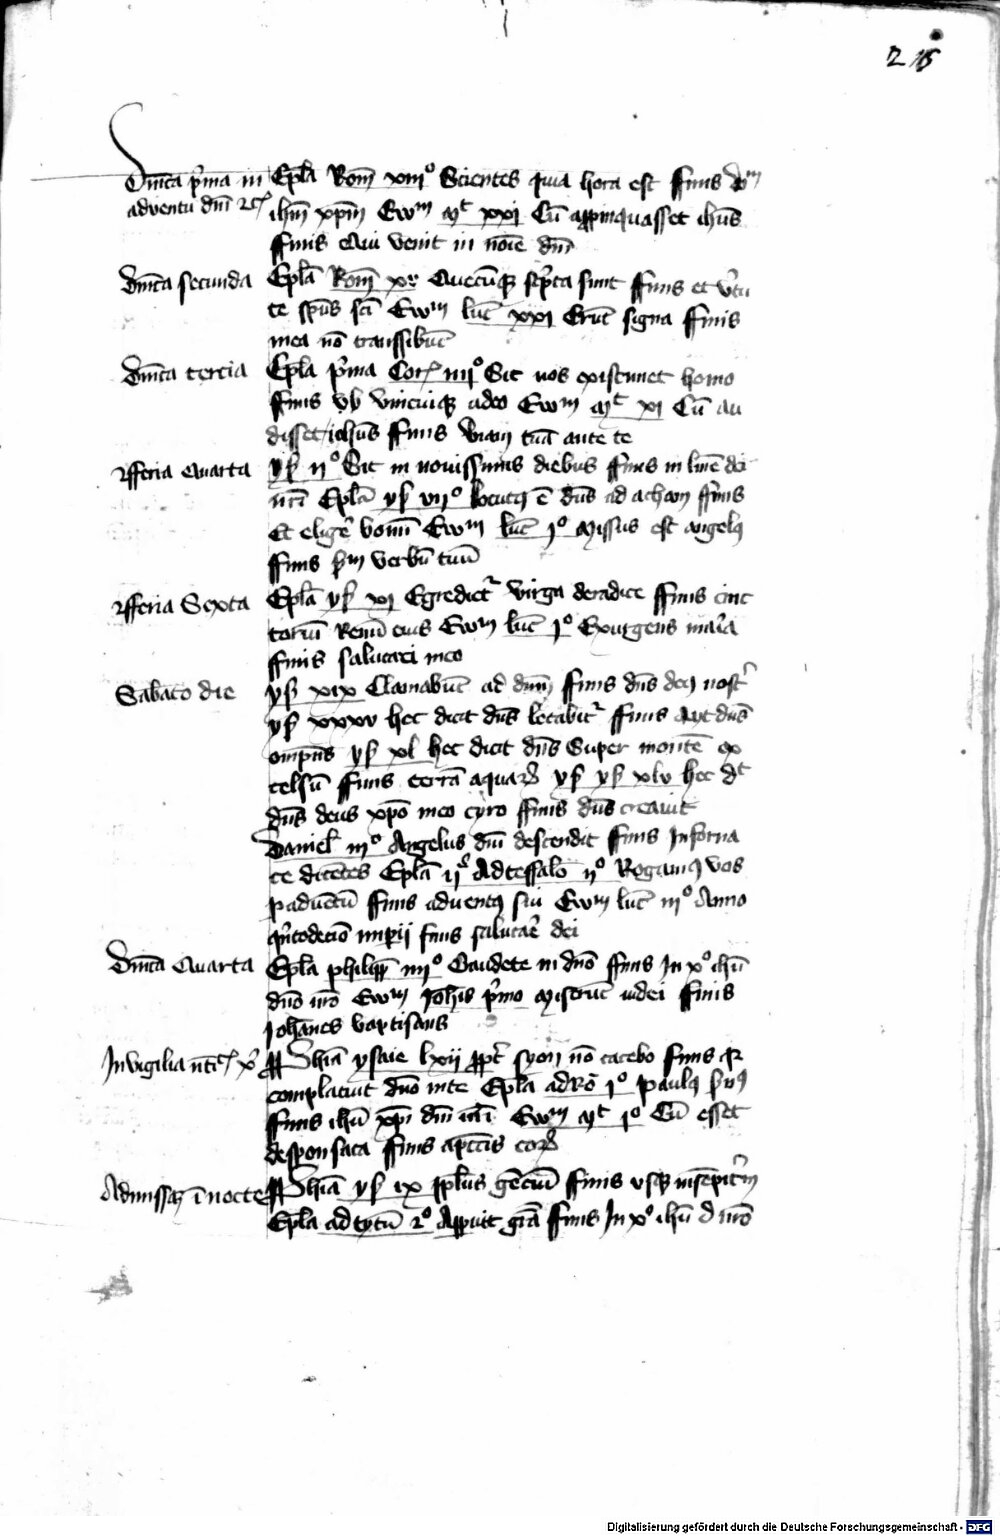 215
Dnica pma in Epla Rom xiii° Scientes quia hora est ffinis dnm
adventu dni ihm xpm Ewm mt xxi Cu appinquasset ihus
ffinis Qui venit in noie dni
Dnica secunda Epla Rom xv Quecuq scpta sunt ffinis et vtu
te spus sci Ewm luc xxi Erut signa ffinis
mea no transsibut
Dnica tercia Epla pma Cor iiii° Sic nos existimet homo
ffinis vnicuiq a deo Ewm mt xi Cu au
disset iohes ffinis viam tua ante te
fferia Quarta ys ii° Sit in novissimis diebus ffinis in lumine dei
nri Epla ys vii° Locutus e dns ad acham ffinis
Et elige bonu Ewm luc i° Missus est angelus
ffinis scdm verbu tuu
fferia Sexta Epla ys xi Egredietr virga de radice ffinis cinc
toriu Renu eius Ewm luc i° Exurgens maria
ffinis salutari meo
Sabato die ys xix Clamabut ad dnm ffinis dns deus nostr
ys xxxv hec dicit dns letabitr ffinis ayt dns
ompns ys xl hec dicit dns Super monte ex
celsu ffinis terra aquar ys ys xlv hec dt
dns deus xpo meo cyro ffinis dns creavit
Daniel iii° Angelus dni descendit ffinis In forna
ce dicetes Epla ii Ad tessalo ii° Rogamus vos
p adventu ffinis adventus sui Ewm luc iii° Anno
qntodecio imperii finis salutare dei
Dnica Quarta Epla philipp iiii° Gaudete in dno ffinis In x° ihu
dno nro Ewm Iohis pmo Miserut iudei ffinis
Iohanes baptisans
In vigilia ysaie lxii ppt syon no tacebo finis qr
complacuit dno in te Epla ad Ro i° paulus servus
ffinis ihu xpi dni nri Ewm mt i° Cu esset
desponsata ffinis
Ad missam i nocte ys ix pplus geciu ffinis usq in sempitrn
Epla ad tytu 2° Appuit gra ffinis In x° ihu d nro
Digitalisierung gefördert durch die Deutsche Forschungsgemeinschaft - DFG